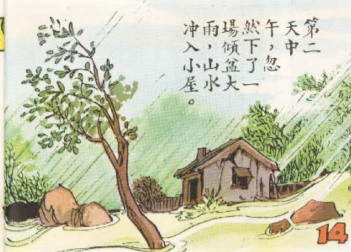 第二
天中
午，忽
然下了一
場傾盆大
雨，山水
冲入小屋。
14